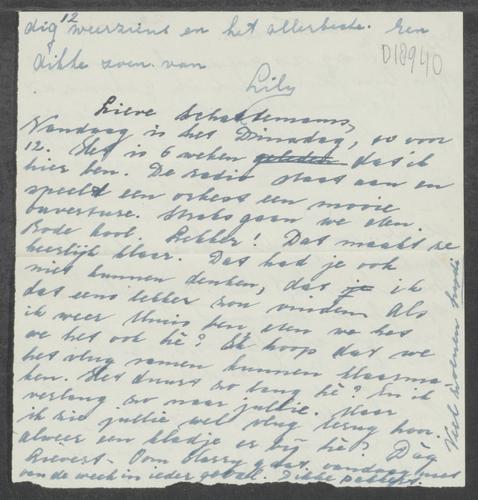 12
dig weerziens en het allerbeste. Een
dikke zoen van
Lily
D18940
Lieve schattemams,
Vandaag is het Dinsdag, 10 voor
12. Het is 6 weken geleden dat ik
hier ben. De radio staat aan en
speelt een orkest een mooie
ouverture. Straks gaan we eten.
Rode kool. Lekker! Dat maakt ze
heerlijk klaar. Dat had je ook
niet kunnen denken, dat je ik
dat eens lekker zou vinden. Als
ik weer thuis ben, eten we het
we het ook hè? Ik hoop dat we
het vlug samen kunnen klaarma-
ken. Het duurt zo lang hè? En ik
verlang zo naar jullie. Maar
ik zie jullie wel vlug terug hoor.
alweer een kladje er bij hè? Dàg
lievert. Oom Harry gaat vandaag met
van de week in ieder geval. Dikke pakkerts.
Veel zoenen